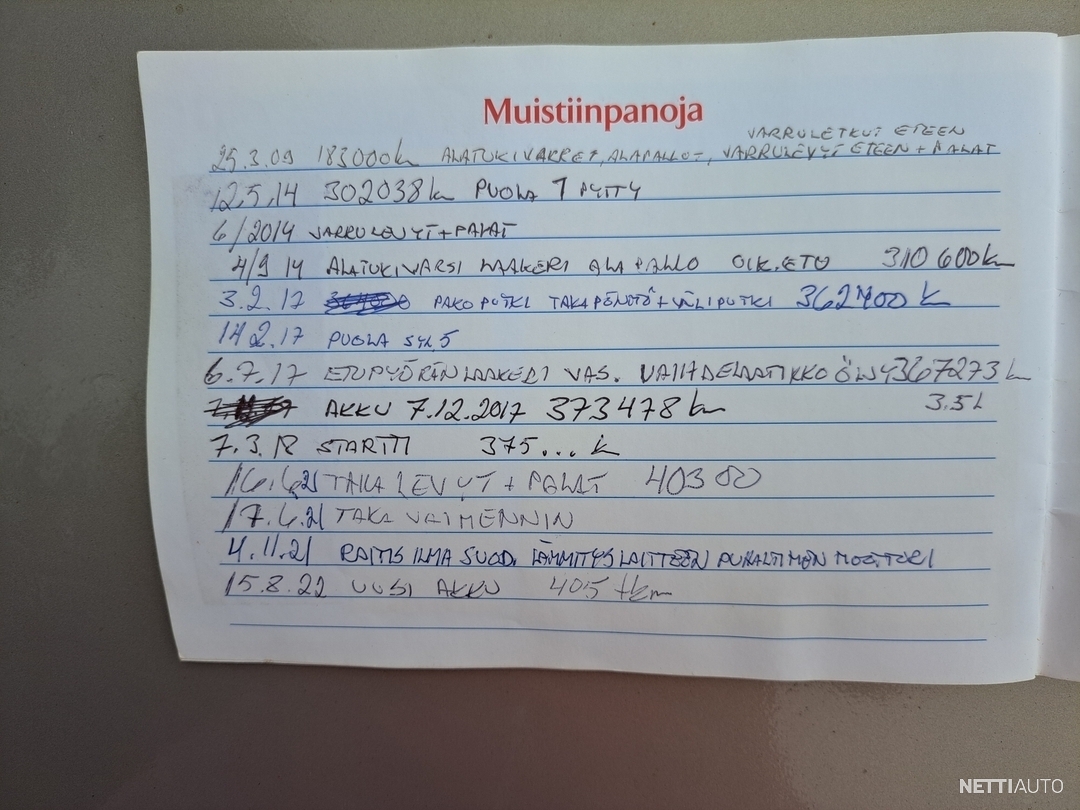 Muistiinpanoja
JARRULETKUT ETEEN
25.3.09 183000km ALATUKIVARRET, ALAPALLOT, JARRULEVYT ETEEN + PALAT
12.5.14 302038km PUOLA 1 PYTTY
6/2014 JARRULEVYT+PALAT
4/9 14 ALATUKIVARSI LAAKERI ALAPALLO OIK.ETU 310600km
3.2.17 PAKOPUTKI TAKAPÖNTTÖ+VÄLIPUTKI 362400 k
14.2.17 PUOLA SYL5
6.7.17 ETUPYÖRÄN LAAKERI VAS. VAIHDELAATIKKO ÖLJY 367273 k
AKKU 7.12.2017 373478km 3.5L
7.3.18 STARTTI 375... k
16.6.21 TAKALEVYT + PALAT 40300
17.6.21 TAKA VAIMENNIN
4.11.21 RAITIS ILMA SUOD. LÄMMITYSLAITTEEN PUHALTIMEN MOOTTORI
15.8.22 UUSI AKKU 405 tkm
NETTIAUTO